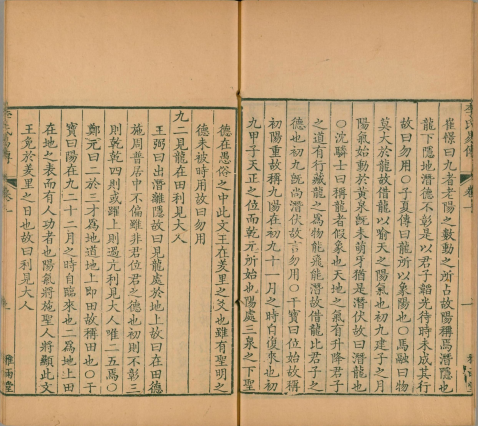 李氏易傳
卷一
崔憬曰九者老陽之數動之所占故陽稱焉潛隱也
龍下隱地潛德不彰是以君子韜光待時未成其行
故曰勿用〇子夏傳曰龍所以象陽也〇馬融曰物
莫大於龍故借龍以喻天之陽氣也初九建子之月
陽氣始動於黃泉既未萌牙猶是潛伏故曰潛龍也
〇沈驎士曰稱龍者假象也天地之氣有升降君子
之道有行藏龍之爲物能飛能潛故借龍比君子之
德也初九既尚潛伏故言勿用〇干寶曰位始故稱
初陽重故稱九陽在初九十一月之時自復來也初
九甲子天正之位而乾元所始也陽處三泉之下聖
德在愚俗之中此文王在羑里之爻也雖有聖明之
德未被時用故曰勿用
九二見龍在田利見大人
王弼曰出潛離隱故曰見龍處於地上故曰在田德
施周普居中不偏雖非君位君之德也初則不彰三
則乾乾四則或躍上則過亢利見大人唯二五焉〇
鄭元曰二於三才爲地道地上即田故稱田也〇干
寶曰陽在九二十二月之時自臨來也二爲地上田
在地之表而有人功者也陽氣將施聖人將顯此文
王免於羑里之日也故曰利見大人
雅雨堂